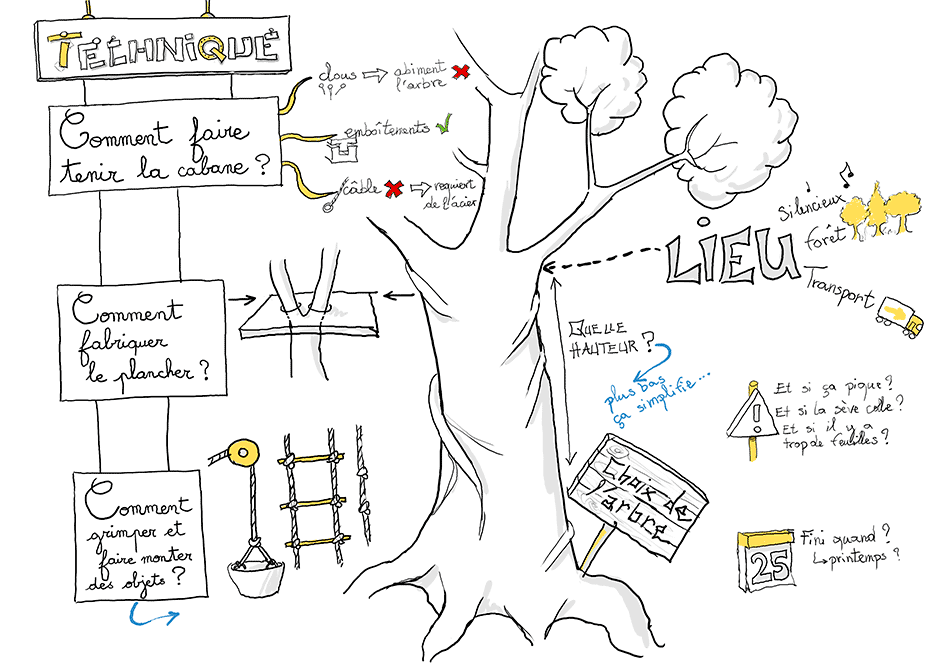 TECHNIQUE
Comment faire
tenir la cabane ?
clous ⇨ abiment
l'arbre
emboîtements
câble ⇨ requiert
de l'acier
Comment
fabriquer
le plancher ?
Comment
grimper et
faire monter
des objets ?
LIEU
Silencieux
forêt
Transport
QUELLE
HAUTEUR ?
plus bas
ça simplifie...
Choix de
l'arbre
Et si ça pique ?
Et si la sève colle ?
Et si il y a
trop de feuilles ?
25
Fini quand ?
↳printemps ?